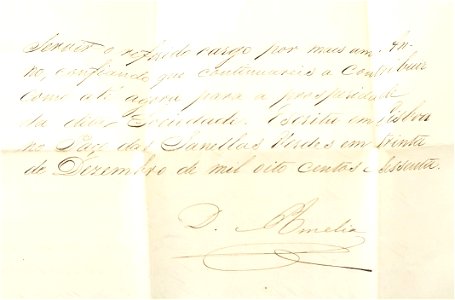 servir o referido cargo por mais um an-
no, confiando que continuareis a contribuir
como até agora para a prosperidade
da dita Sociedade. Escripto em Lisboa
no Paço das Janellas Verdes em trinta
de Dezembro de mil oito centos e sessenta.
D. Amelia